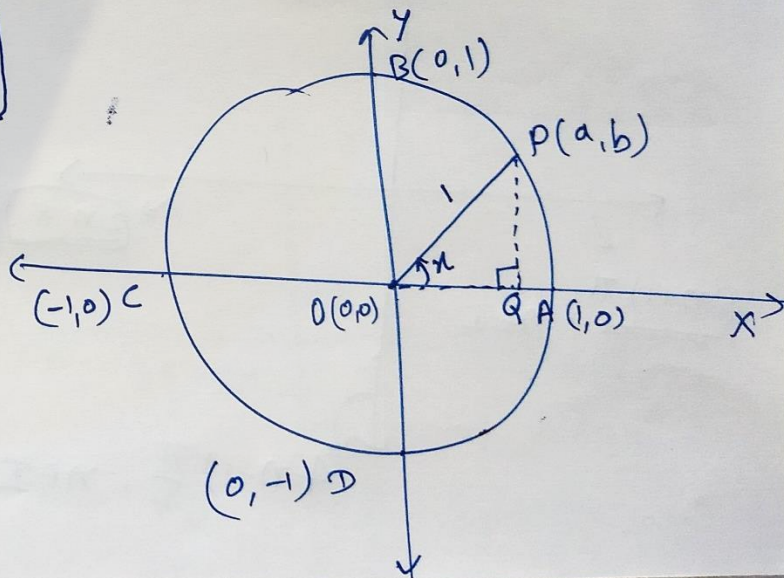 Y
B(0,1)
P(a,b)
1
x
(-1,0) C
O(0,0)
Q A (1,0)
X
(0,-1) D